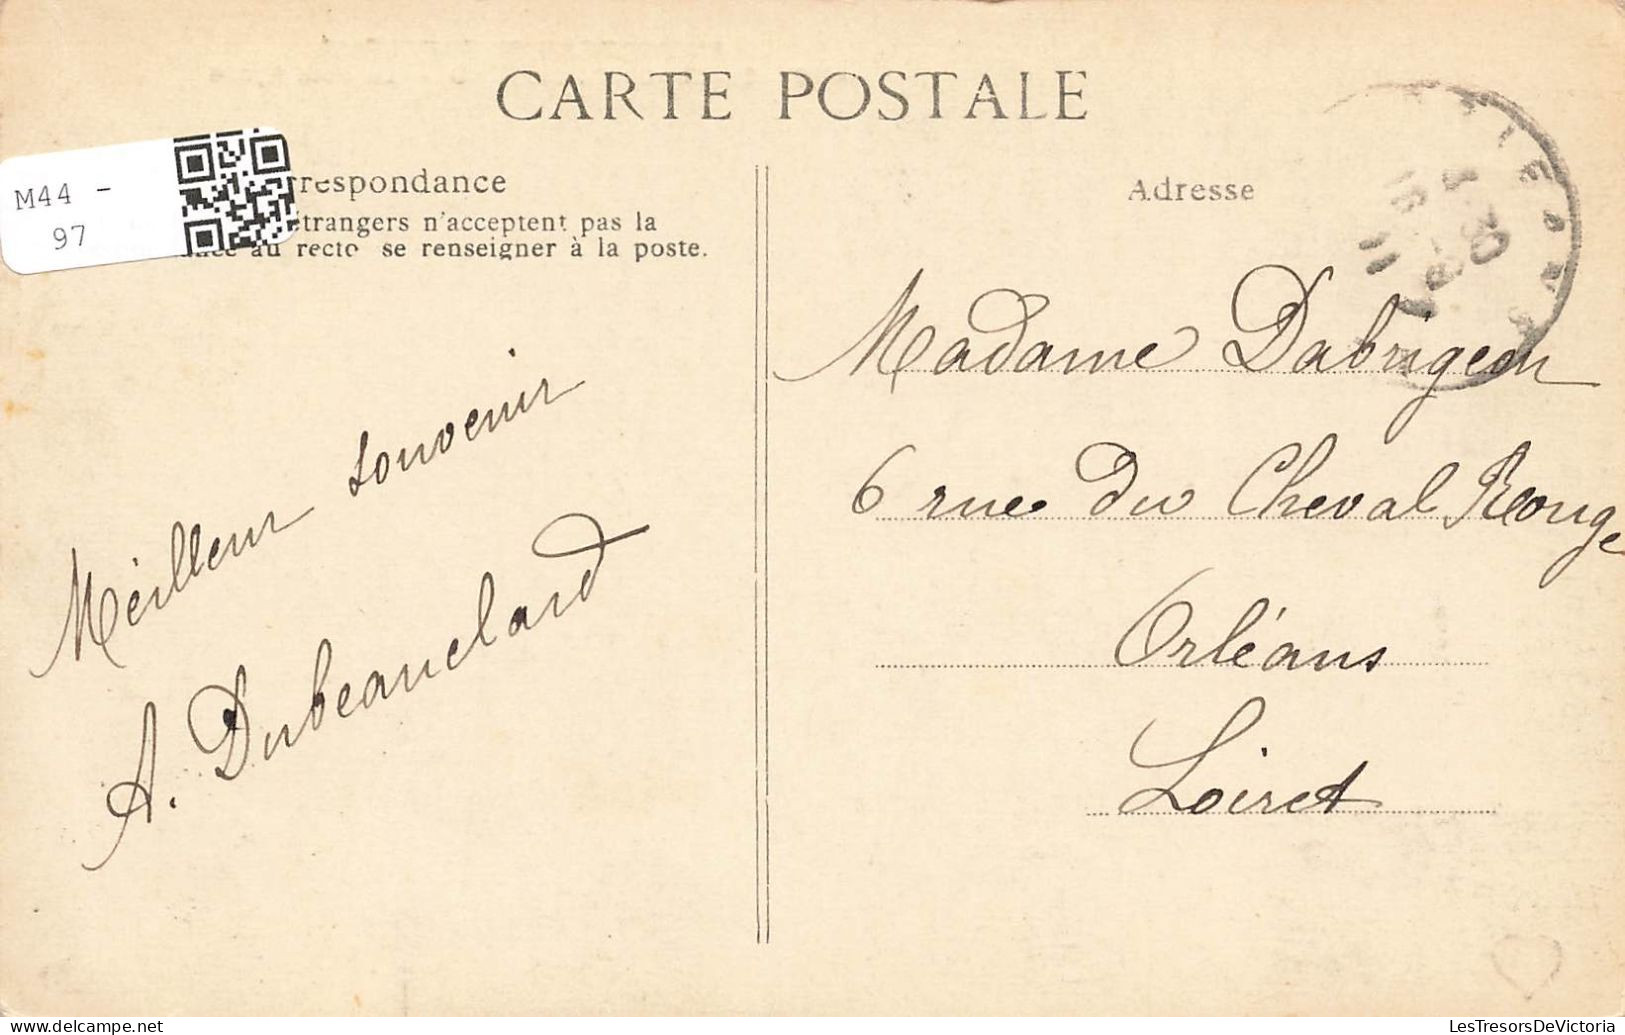 CARTE POSTALE
M44 -
97
rrespondance
étrangers n'acceptent pas la
au recto se renseigner à la poste.
Adresse
Meilleur souvenir
A. Dubeauclard
Madame Dabrigeon
6 rue du Cheval Rouge
Orléans
Loiret
LesTresorsDeVictoria